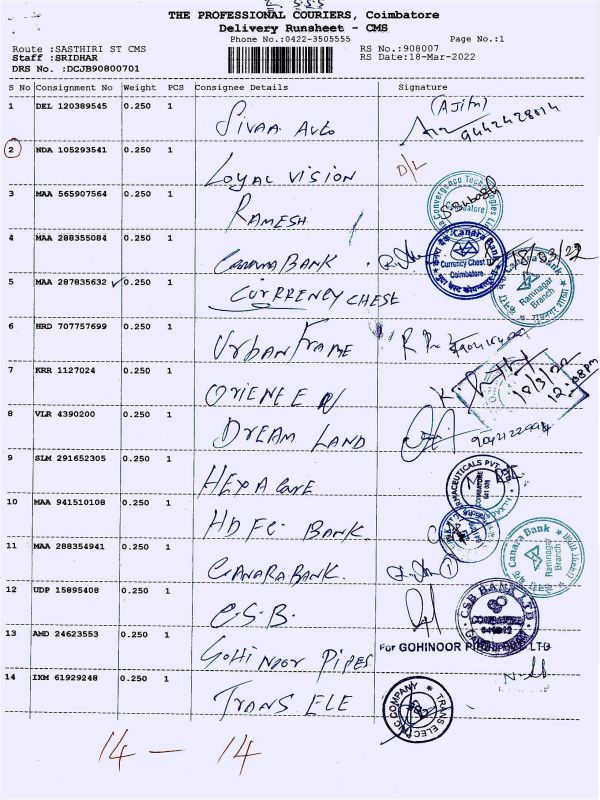 THE PROFESSIONAL COURIERS, Coimbatore
Delivery Runsheet - CMS
Phone No.:0422-3505555 Page No.:1
Route :SASTHIRI ST CMS RS No.:908007
Staff :SRIDHAR RS Date:18-Mar-2022
DRS No. :DCJB90800701
S No Consignment No Weight PCS Consignee Details Signature
1 DEL 120389545 0.250 1 SIVAA AUTO (AJith)
9442428014
2 NDA 105293541 0.250 1 LOYAL VISION D/L
3 MAA 565907564 0.250 1 RAMESH
Coimbatore
4 MAA 288355084 0.250 1 CANARA BANK 18/03/22
Canara Bank
Currency Chest
Coimbatore
5 MAA 287835632 0.250 1 CURRENCY CHEST
Canara Bank
Ramnagar
Branch
6 HRD 707757699 0.250 1 URBAN FRAME
7 KRR 1127024 0.250 1 ORIENEE N
18/3/22
12:08pm
8 VLR 4390200 0.250 1 DREAM LAND
9 SLM 291652305 0.250 1 HEXA CARE
10 MAA 941510108 0.250 1 HDFC BANK.
11 MAA 288354941 0.250 1 CANARA BANK. 1
Canara Bank
Ramnagar
Branch
12 UDP 15895408 0.250 1 C.S.B.
CSB BANK LTD
COIMBATORE
13 AMD 24623553 0.250 1 GOHINOOR PIPES For GOHINOOR LTD
14 IXM 61929248 0.250 1 TRANS ELE
TRANS ELECTRIC COMPANY
14 - 14